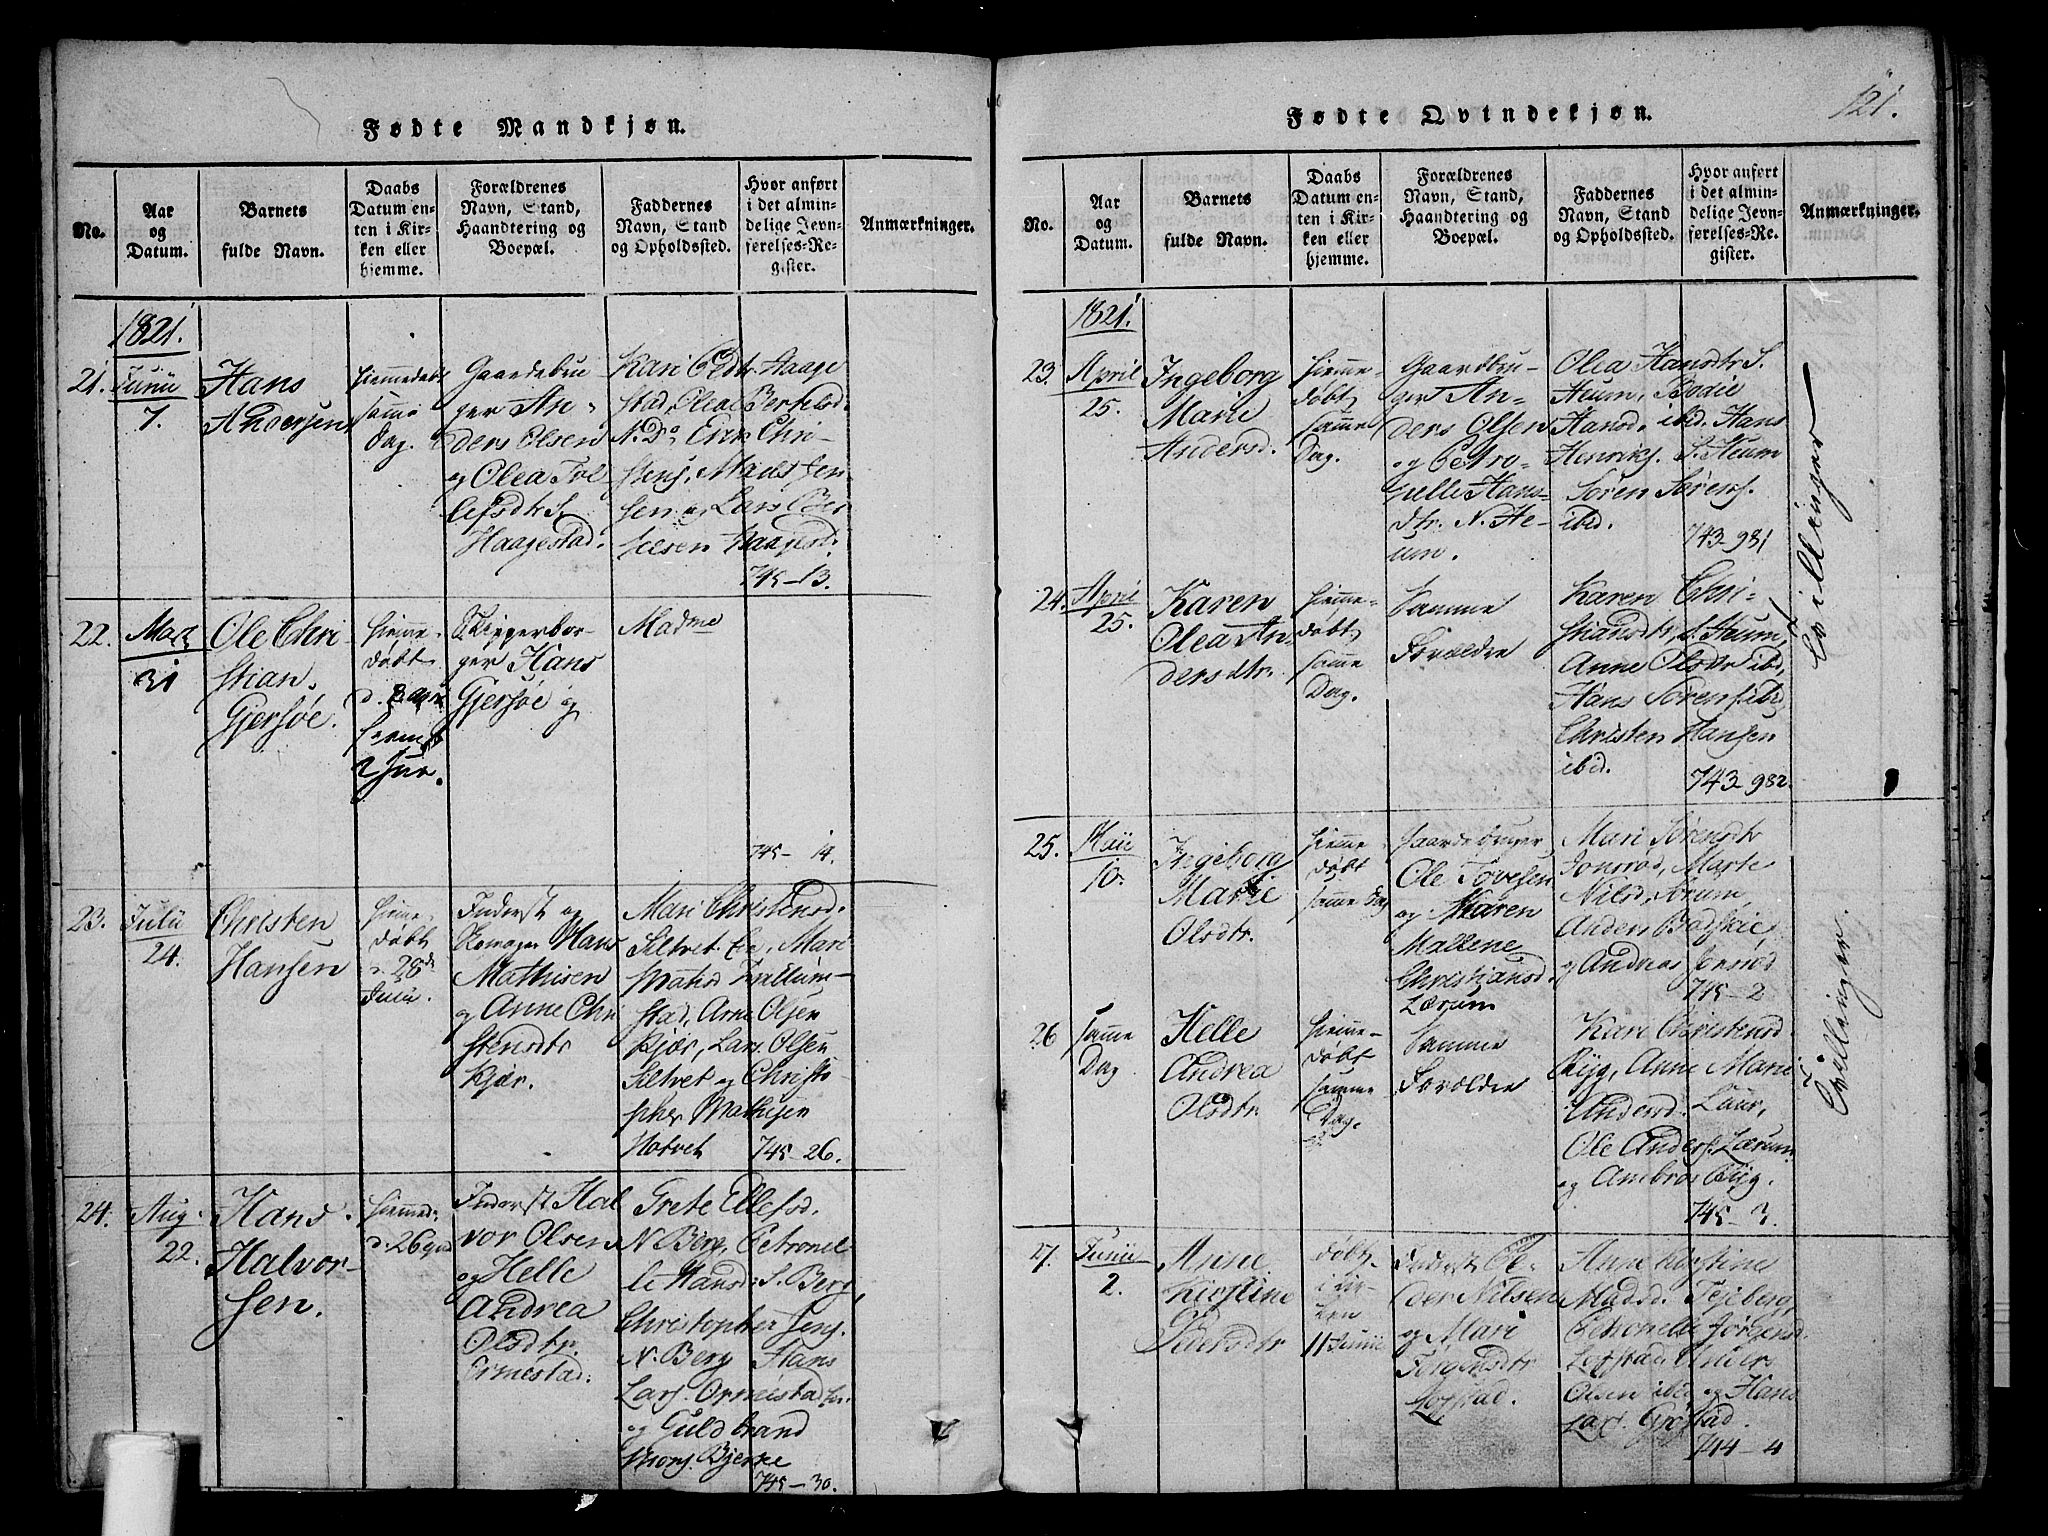 Fødte Mandkjøn.
No.
Aar
og
Datum.
Barnets
fulde Navn.
Daabs
Datum en-
ten i Kir-
ken eller
hjemme.
Forældrenes
Navn, Stand,
Haandtering og
Boepæl.
Faddernes
Navn, Stand
og Opholdssted.
Hvor anført
i det almin-
delige Jevn-
førelses-Re-
gister.
Anmærkninger.
1821.
21.
Junii
7.
Hans
Andersen
hiemmedøbt
samme
Dag.
Gaardebru
ger An-
ders Olsen
og Olea Tol
lefsdtr S.
Haagestad.
Kari Oldtr. Haage
stad, Olea Bertelsd.
N. Do, Erik Chri-
stens, Mads Jen-
sen og Lars
Haagestd.
745-13.
22.
Marts
31
Ole Chri
stian
Gjersøe.
hiemme-
døbt
Skipperbor-
ger Hans
Gjersøe og
Madme
745- 14.
23.
Julii
24.
Christen
Hansen
hiemme-
døbt
28de
Julii.
Inderst og
Hans
Mathisen
og Anne Chri
stensdtr
Kjær.
Mari Christensd.
Siltvet
stad, Arne Olsen
Kjær, Lars Olsen
Siltvet og Christo-
pher Mathisen
Horvet
745-26.
24.
Aug.
22.
Hans
Halvor-
sen.
hiemmed:
d. 26
Inderst Hal
vor Olsen
og Helle
Andrea
Olsdtr.
Ormestad.
Grete Ellefsd.
N. Berg, Petronel
le Hansd. S. Berg,
Christopher Jens.
N. Berg Hans
Lars. Ormestad
og Guldbrand
Mons. Bjerke
745-30.
Fødte Qvindekjøn.
121.
No.
Aar
og
Datum.
Barnets
fulde Navn.
Daabs
Datum en-
ten i Kir-
ken eller
hjemme.
Forældrenes
Navn, Stand,
Haandtering og
Boepæl.
Faddernes
Navn, Stand
og Opholdssted.
Hvor anført
i det almin-
delige Jevn-
førelses-Re-
gister.
Anmærkninger.
1821.
23.
April
25.
Ingeborg
Marie
Andersd.
hiemme-
døbt
samme
Dag.
Gaardbru-
ger An-
ders Olsen
og Petro-
nelle Hans-
dtr. N. He-
um.
Olea Hansdtr S.
Heum, Bodil
Hansd. ibid. Hans
Henriks. S. Heum
Søren Sørens.
ibid.
743-981
Tvillinger
24.
April
25.
Karen
Olea An-
dersdtr.
hiemme-
døbt
samme
Dag.
Samme
Forældre
Karen Chri-
stiansdtr. S. Heum,
Anne Olsdtr ibid,
Hans Sørens. ibid,
Christen Hansen
ibid.
743-982.
25.
Maii
10.
Ingeborg
Marie
Olsdtr.
hiemme-
døbt
samme Dag
Gaardebruger
Ole Tovesen
og Maren
Mallene
Christiansd.
Lærum
Mari Sørensdtr
Jonsrød, Marte
Nilsd. Sørum,
Anders
og Andreas Jonsrød
745-2
Tvillinger.
26
samme
Dag
Helle
Andrea
Olsdtr.
hiemme-
døbt
samme
Dag.
Samme
Forældre
Kari Christensd.
Ryg, Anne Marie
Andersd. Laur,
Ole Anders. Lærum
og Ambros Ryg.
745-3.
27.
Junii
2.
Anne
Kirstine
Pedersdtr
døbt
i Kir-
ken
11 Junii
Inderst Pe-
der Nilsen
og Mari
Jørgensdtr
Løvstad.
Anne Kirstine
Madsd. Fejeberg,
Petronelle Jørgensd.
Løvstad, Anders
Olsen ibid og Hans
Lars.
744-4